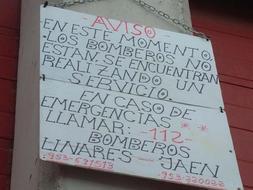 AVISO
EN ESTE MOMENTO
LOS BOMBEROS NO
ESTAN, SE ENCUENTRAN
REALIZANDO UN
SERVICIO.
EN CASO DE
EMERGENCIAS
LLAMAR: -112-
BOMBEROS
LINARES - JAEN